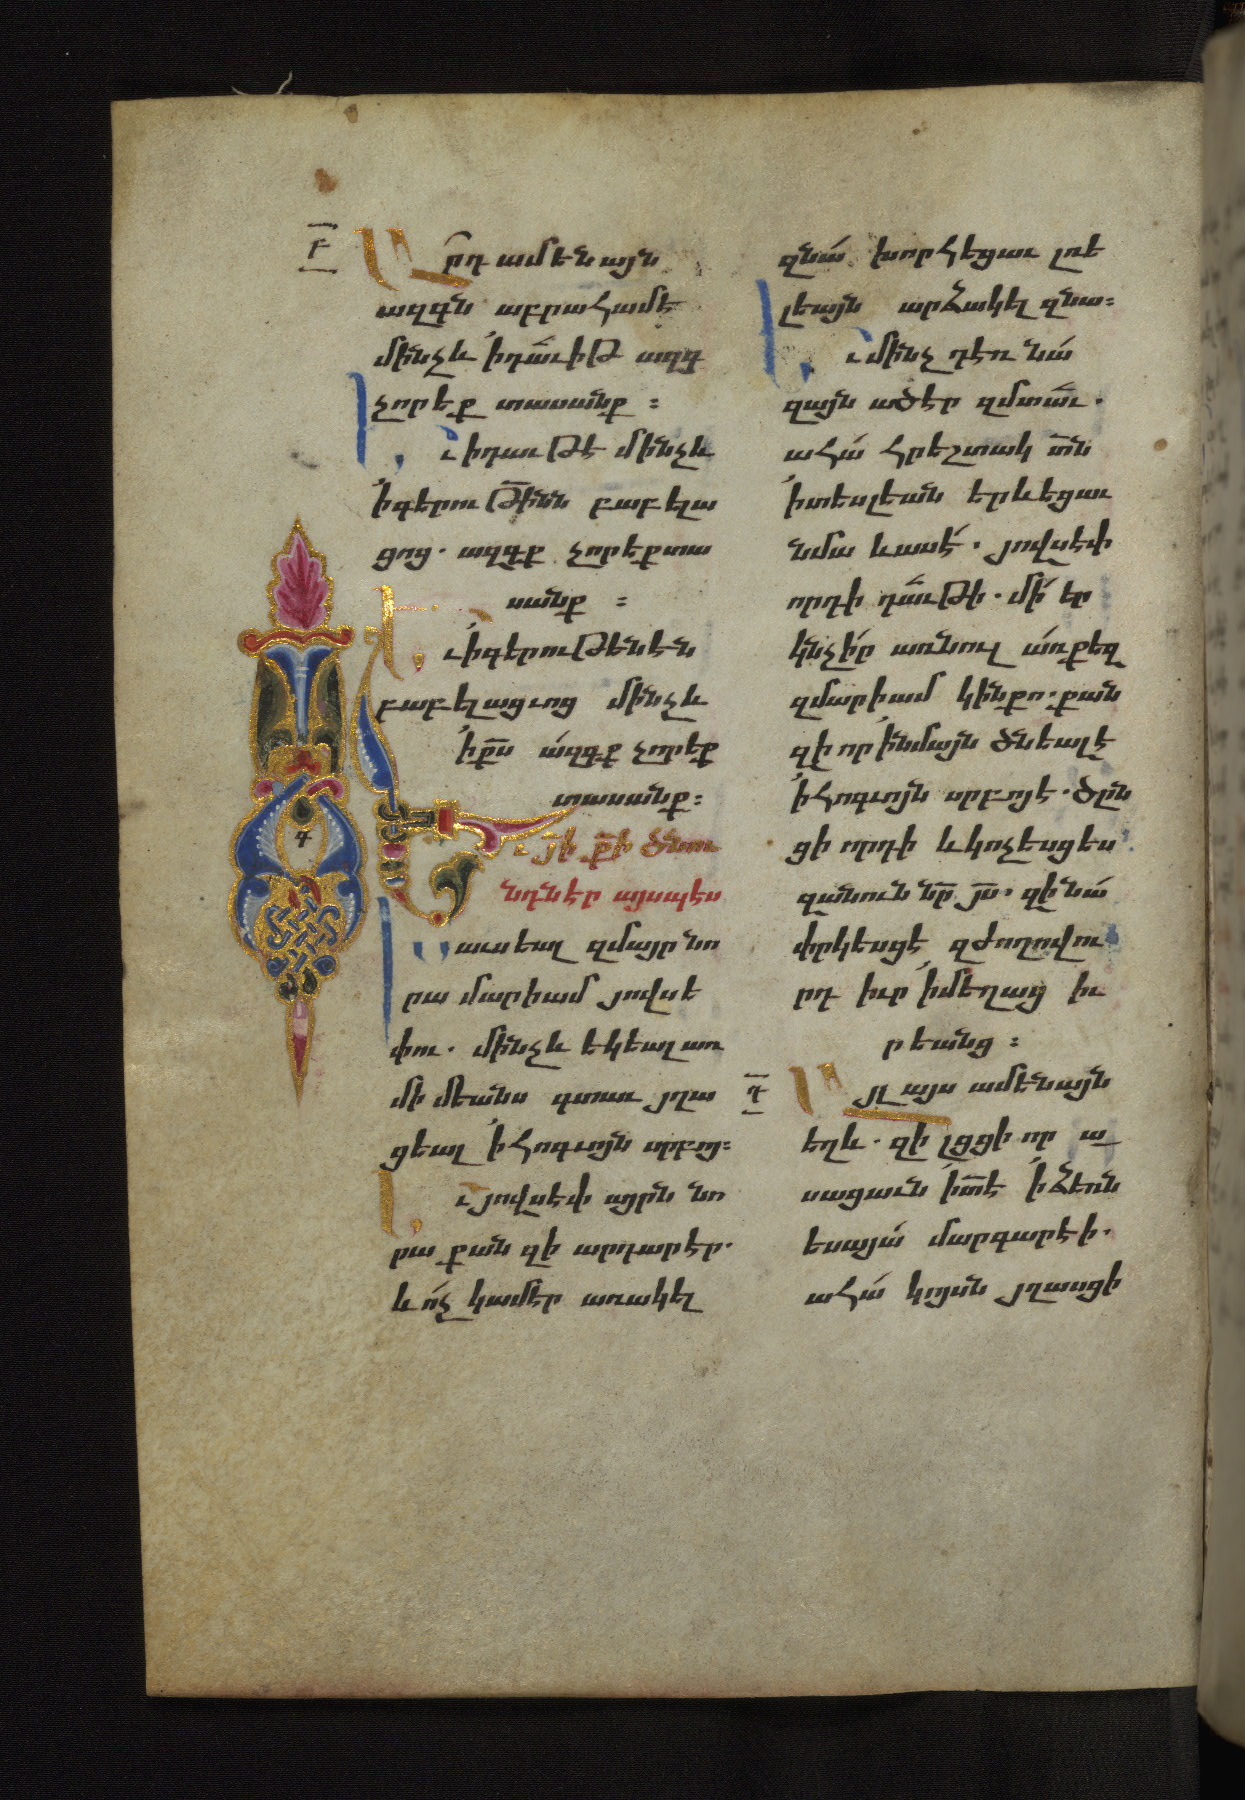 Բ
Արդ ամենայն
ազգն աբրահամէ
մինչև ի դաւիթ ազգ
չորեքտասանք ։
Եւ ի դաւթէ մինչև
ի գերութինն բաբելա
ցոց . ազգք չորեքտա
սանք ։
Եւ ի գերութենէն
բաբելացւոց մինչև
ի քս ազգք չորեք
տասանք ։
Եւ յի քի ծնու
նդն էր այսպէս
Խաւսեալ զմայր նո
րա մարիամ յովսե
փու . մինչև եկեալ առ
միմեանս գտաւ յղա
ցեալ ի հոգւոյն սրբոյ ։
Եւ յովսէփ այրն նո
րա քան զի արդար էր .
և ոչ կամէր առակել
զնա խորհեցաւ լռե
լեայն արձակել զնա ։
Եւ մինչ դեռ նա
զայն ածէր զմտաւ .
ահա հրեշտակ տն
ի տեսլեան երևեցաւ
նմա և ասէ . յովսէփ
որդի դաւթի . մի եր
կնչիր առնուլ առ քեզ
զմարիամ կին քո . քան
զի որ ի նմայն ծնեալ է
ի հոգւոյն սրբոյ է . ծըն
ցի որդի և կոչեսցես
զանուն նր յս . զի նա
փրկեսցէ զժողովու
րդ իւր ի մեղաց իւ
րեանց ։
Դ
Այլ այս ամենայն
եղև . զի լցցի որ ա
սացաւն ի տէ ի ձեռն
եսայա մարգարէի .
ահա կոյսն յղասցի